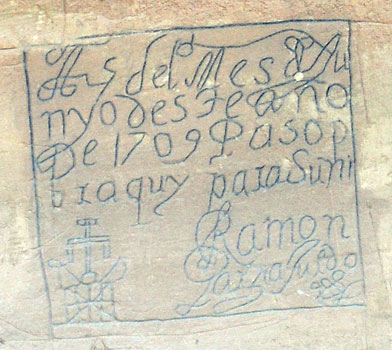 del Mes de Ju
nyo deste año
De 1709 Paso p
or aquy para Suñi
Ramon
Garzia Jurado